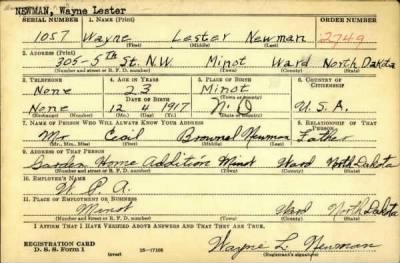 NEWMAN, Wayne Lester
SERIAL NUMBER 1. NAME (Print) ORDER NUMBER
1057 Wayne Lester Newman 2749
(First) (Middle) (Last)
2. ADDRESS (Print)
305-5th St. N.W. Minot Ward North Dakota
(Number and street or R. F. D. number) (Town) (County) (State)
3. TELEPHONE 4. AGE IN YEARS 5. PLACE OF BIRTH 6. COUNTRY OF CITIZENSHIP
None 23 Minot
DATE OF BIRTH (Town or county)
None 12 4 1917 N. D U.S.A.
(Mo.) (Day) (Yr.) (State or country)
7. NAME OF PERSON WHO WILL ALWAYS KNOW YOUR ADDRESS 8. RELATIONSHIP OF THAT PERSON
Mr Newman Father
(Mr., Mrs., Miss) (First) (Middle) (Last)
9. ADDRESS OF THAT PERSON
Garden Home Addition Minot Ward North Dakota
(Number and street or R. F. D. number) (Town) (County) (State)
10. EMPLOYER'S NAME
W. P. A.
11. PLACE OF EMPLOYMENT OR BUSINESS
Minot Ward North Dakota
(Number and street or R. F. D. number) (Town) (County) (State)
I AFFIRM THAT I HAVE VERIFIED ABOVE ANSWERS AND THAT THEY ARE TRUE.
REGISTRATION CARD
D. S. S. Form 1 (over) 16—17105 Wayne L. Newman
(Registrant's signature)